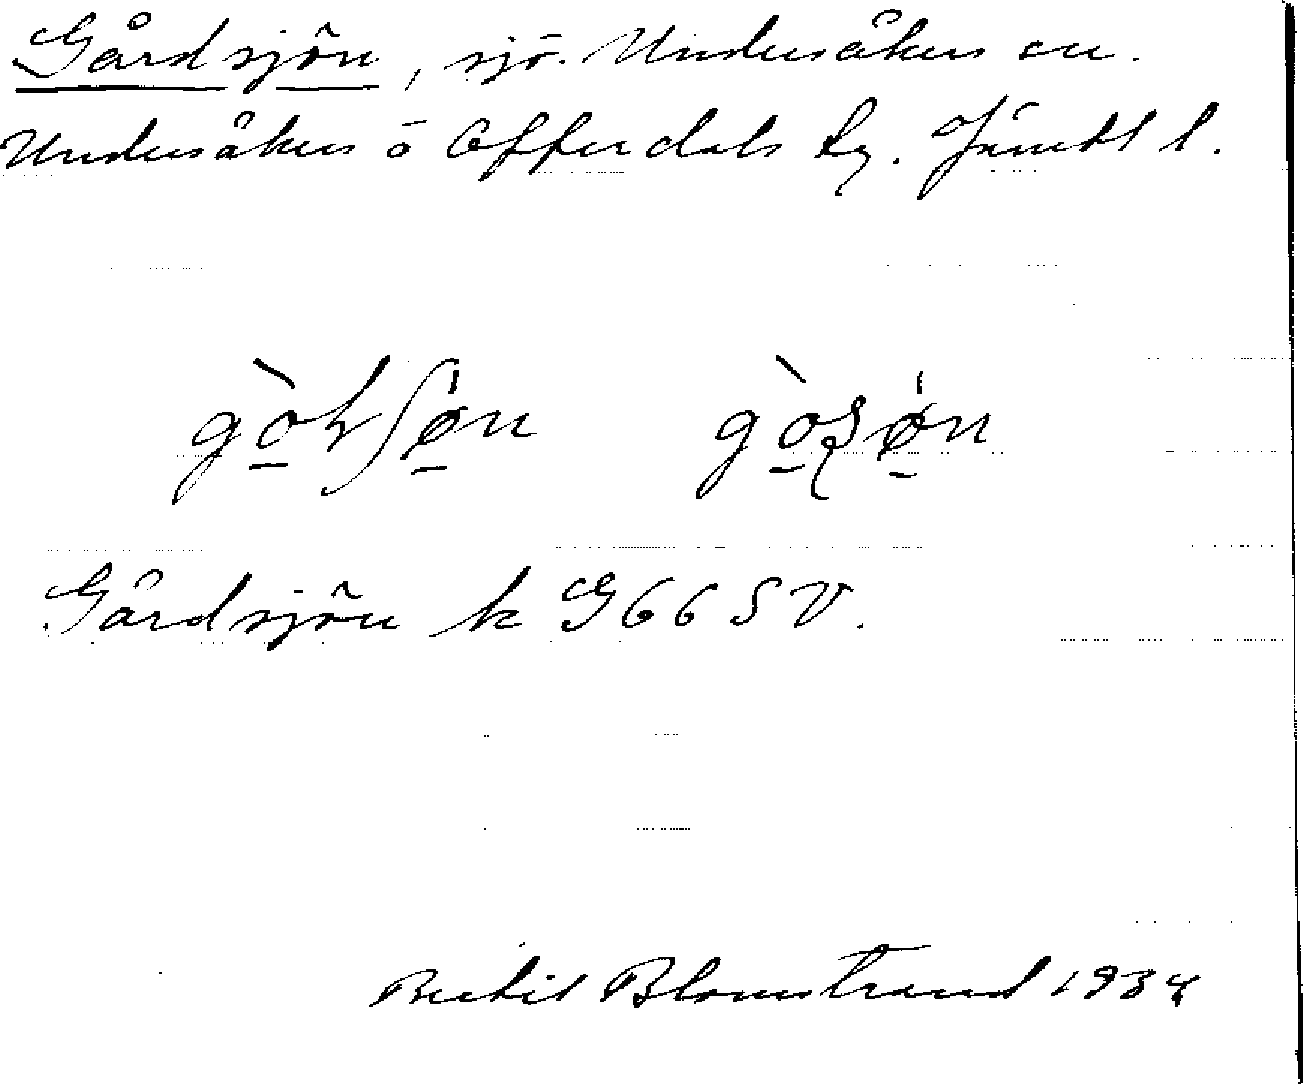 Gårdsjön, sjö. Undersåkers sn.
Undersåkers o Offerdals tg. Jämtl l.
Gårdsjön k G66 SV.
Bertil Blomstrand 1934